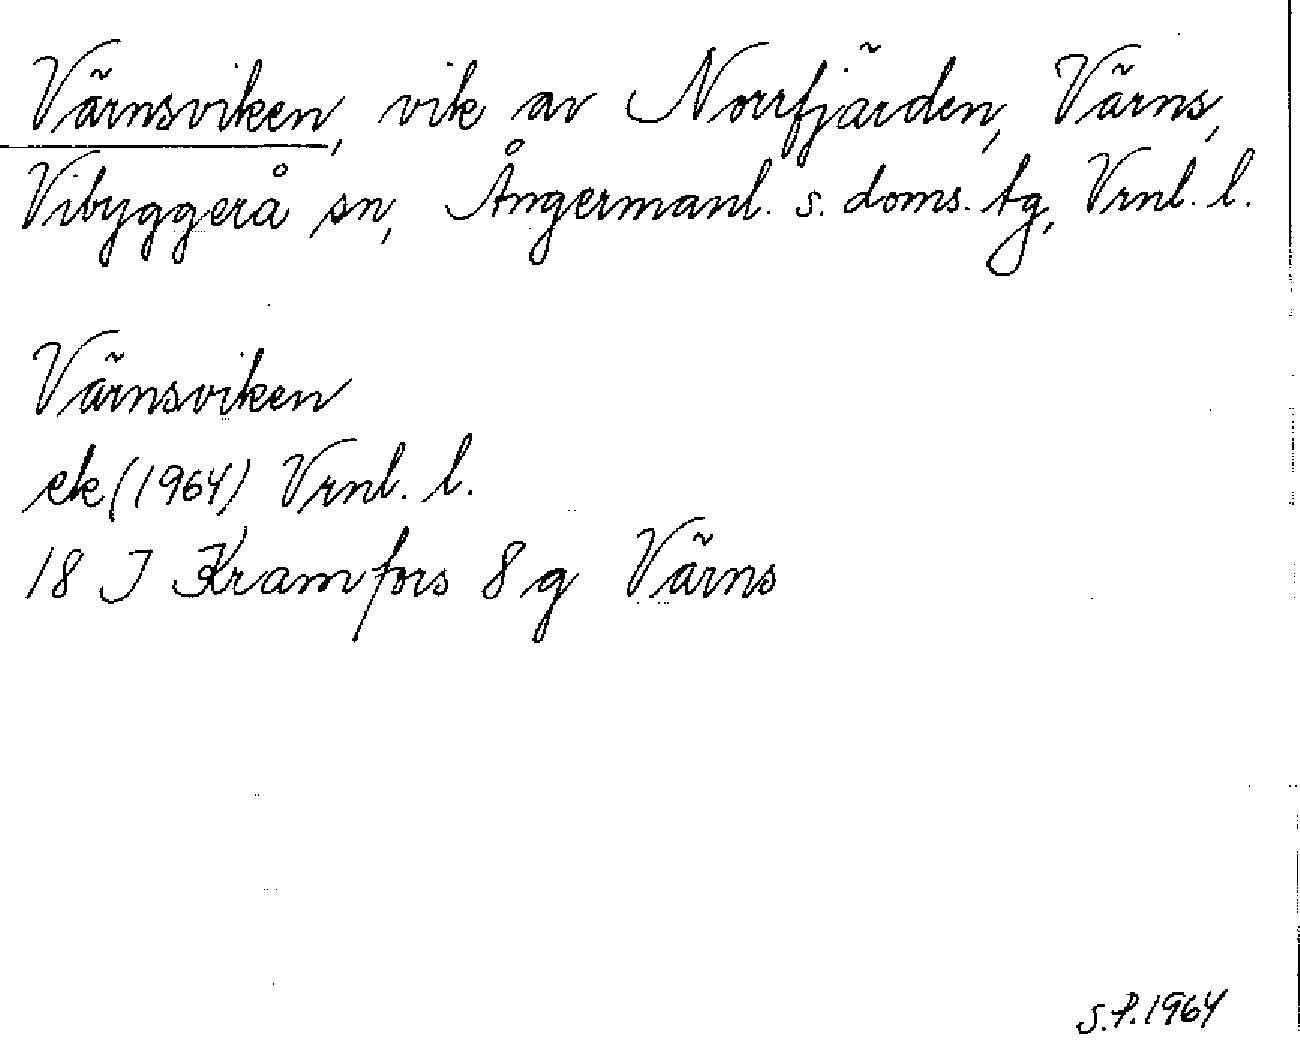 Värnsviken, vik av Norrfjärden, Värns,
Vibyggerå sn, Ångermanl. s. doms. tg, Vrnl. l.
Värnsviken
ek (1964) Vrnl. l.
18 J Kramfors 8 g Värns
S.P. 1964